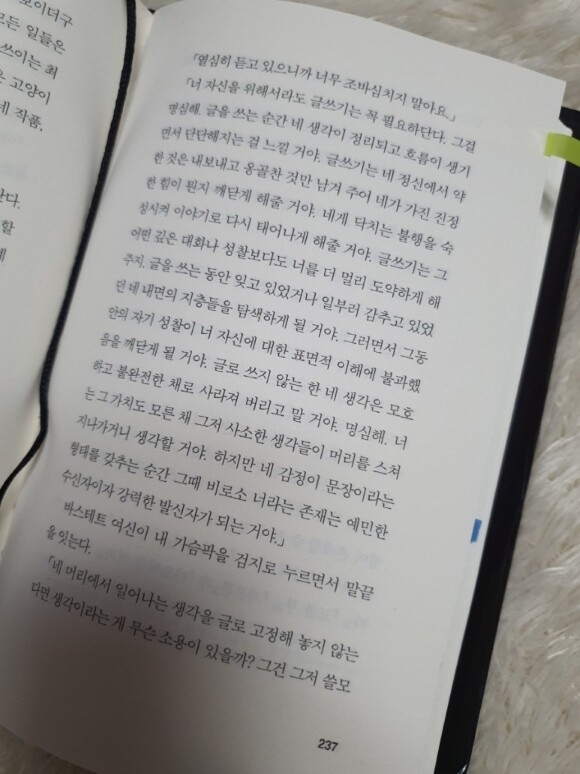 보이더구
모든 일들은
쓰이는 최
은 고양이
네 작품.
란다.
할
에
「열심히 듣고 있으니까 너무 조바심치지 말아요.」
「너 자신을 위해서라도 글쓰기는 꼭 필요하단다. 그걸
명심해. 글을 쓰는 순간 네 생각이 정리되고 흐름이 생기
면서 단단해지는 걸 느낄 거야. 글쓰기는 네 정신에서 약
한 것은 내보내고 옹골찬 것만 남겨 주어 네가 가진 진정
한 힘이 뭔지 깨닫게 해줄 거야. 네게 닥치는 불행을 숙
성시켜 이야기로 다시 태어나게 해줄 거야. 글쓰기는 그
어떤 깊은 대화나 성찰보다도 너를 더 멀리 도약하게 해
주지. 글을 쓰는 동안 잊고 있었거나 일부러 감추고 있었
던 네 내면의 지층들을 탐색하게 될 거야. 그러면서 그동
안의 자기 성찰이 너 자신에 대한 표면적 이해에 불과했
음을 깨닫게 될 거야. 글로 쓰지 않는 한 네 생각은 모호
하고 불완전한 채로 사라져 버리고 말 거야. 명심해. 너
는 그 가치도 모른 채 그저 사소한 생각들이 머리를 스쳐
지나가거니 생각할 거야. 하지만 네 감정이 문장이라는
형태를 갖추는 순간 그때 비로소 너라는 존재는 예민한
수신자이자 강력한 발신자가 되는 거야.」
바스테트 여신이 내 가슴팍을 검지로 누르면서 말끝
을 잇는다.
「네 머리에서 일어나는 생각을 글로 고정해 놓지 않는
다면 생각이라는 게 무슨 소용이 있을까? 그건 그저 쓸모
237